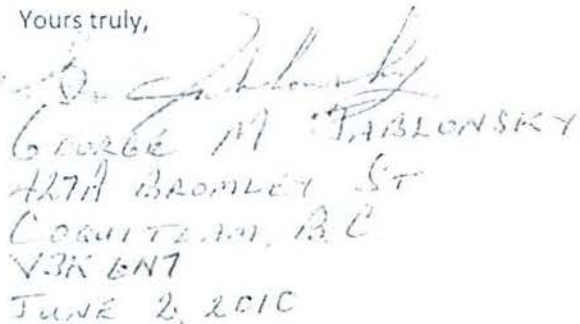 Yours truly,
GEORGE M JABLONSKY
427A BROMLEY ST
COQUITLAM, BC
V3K 6N7
JUNE 2, 2010